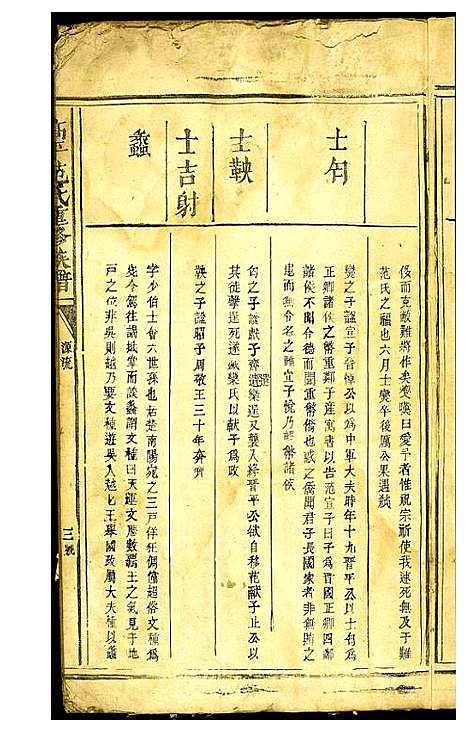 侈而克敵難將作矣愛我曰愛予者惟祝宗祈使我速死無及于難
范氏之福也六月士燮卒後厲公果遇弒
士匄
燮之子諡宣子晉悼公以為中軍大夫時年十九晉平公以士匄為
正卿諸侯之幣重鄭子產寓書以告范宣子曰子為晉國正卿四鄰
諸侯不聞令德而聞重幣僑也惑之僑聞君子長國家者非無賄之
患而無令名之難宣子悅乃輕幣諸侯
士鞅
匄之子諡獻子奔遣欒逞又襲入絳晉平公欲自移范獻子止公以
其徒擊逞死遂滅欒氏以獻子為政
士吉射
鞅之子諡昭子周敬王三十年奔齊
蠡
字少伯士會六世孫也居楚南陽宛之三戶佯狂倜儻超俗文種為
宛令駕往謁抵掌而談蠡謂文種曰天運文歷數霸王之氣見于地
戶之位非吳則越乃要文種遊吳入越七王舉國政屬大夫種以蠡
范氏重修族譜
源流
三